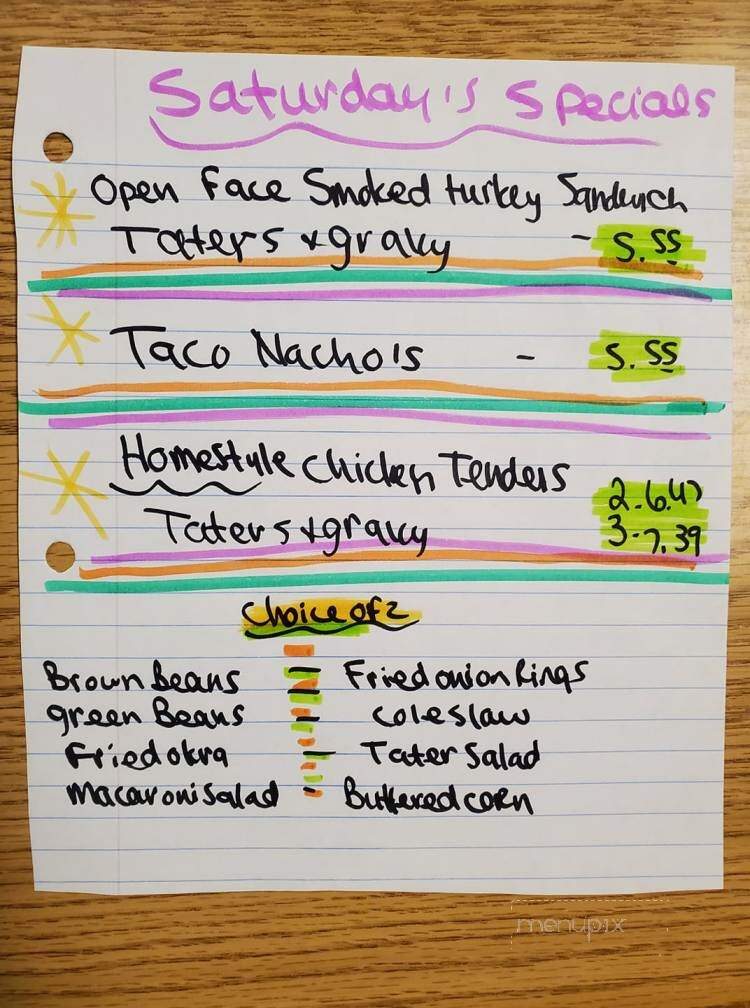 Saturday's Specials
Open Face Smoked turkey Sandwich
Taters & gravy - 5.55
Taco Nacho's - 5.55
Homestyle Chicken Tenders 2-6.47
Taters & gravy 3-7.39
Choice of 2
Brown Beans - Fried onion Rings
green Beans - coleslaw
Fried okra - Tater Salad
macaroni Salad - Buttered corn
menupix